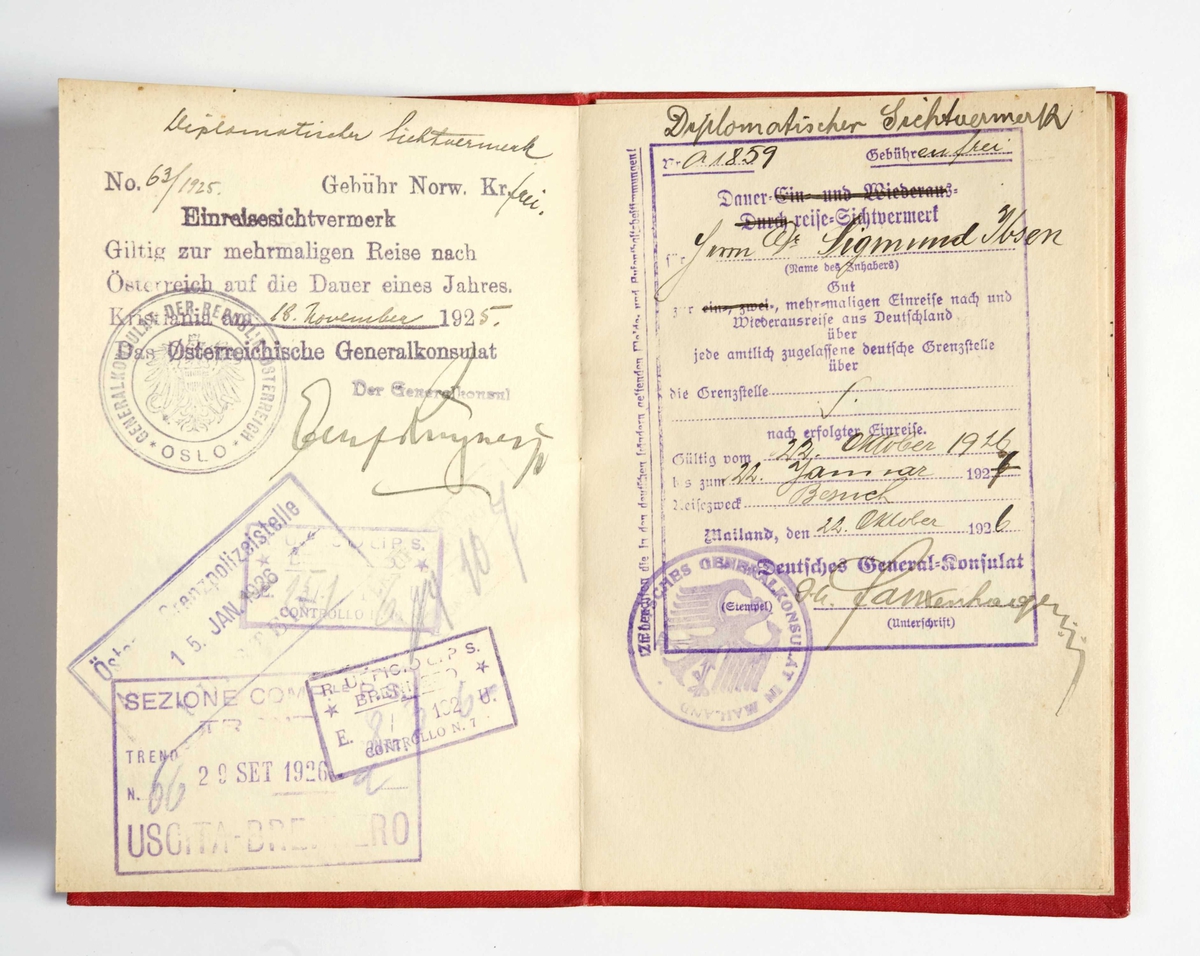 Diplomatischer Sichtvermerk
No. 63/1925. Gebühr Norw. Kr. frei.
Einreisesichtvermerk
Giltig zur mehrmaligen Reise nach
Österreich auf die Dauer eines Jahres.
Kristiania am 18. November 1925.
Das Østerreichische Generalkonsulat
Der Generalkonsul
GENERALKONSULAT DER REPUBLIK ÖSTERREICH
OSLO
Grenzpolizeistelle
15. JAN. 1926
CONTROLLO
SEZIONE
TREND
N. 66
29 SET 1926
USCITA-BRENNERO
UFFICIO P.S.
BRENNERO
E. 192 U.
CONTROLLO N. 7
Diplomatischer Sichtvermerk
Nr. A 1859 Gebühren frei
Dauer-Ein- und Wiederaus-
Durch reise-Sichtvermerk
für Herrn Dr Sigmund Ibsen
(Name des Inhabers)
Gut
zur ein-, zwei-, mehr-maligen Einreise nach und
Wiederausreise aus Deutschland
über
jede amtlich zugelassene deutsche Grenzstelle
über
die Grenzstelle
nach erfolgter Einreise.
Gültig vom 22. Oktober 1926
bis zum 22. Januar 1927
Reisezweck Besuch
Mailand, den 22. Oktober 1926
Deutsches General-Konsulat
(Stempel)
(Unterschrift)
DEUTSCHES GENERALKONSULAT IN MAILAND